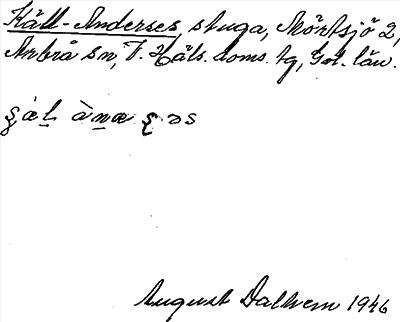 Käll-Anderses stuga, Möntsjö 2,
Arbrå sn, V. Häls. doms. tg, Gvl. län.
August Dalhem 1946